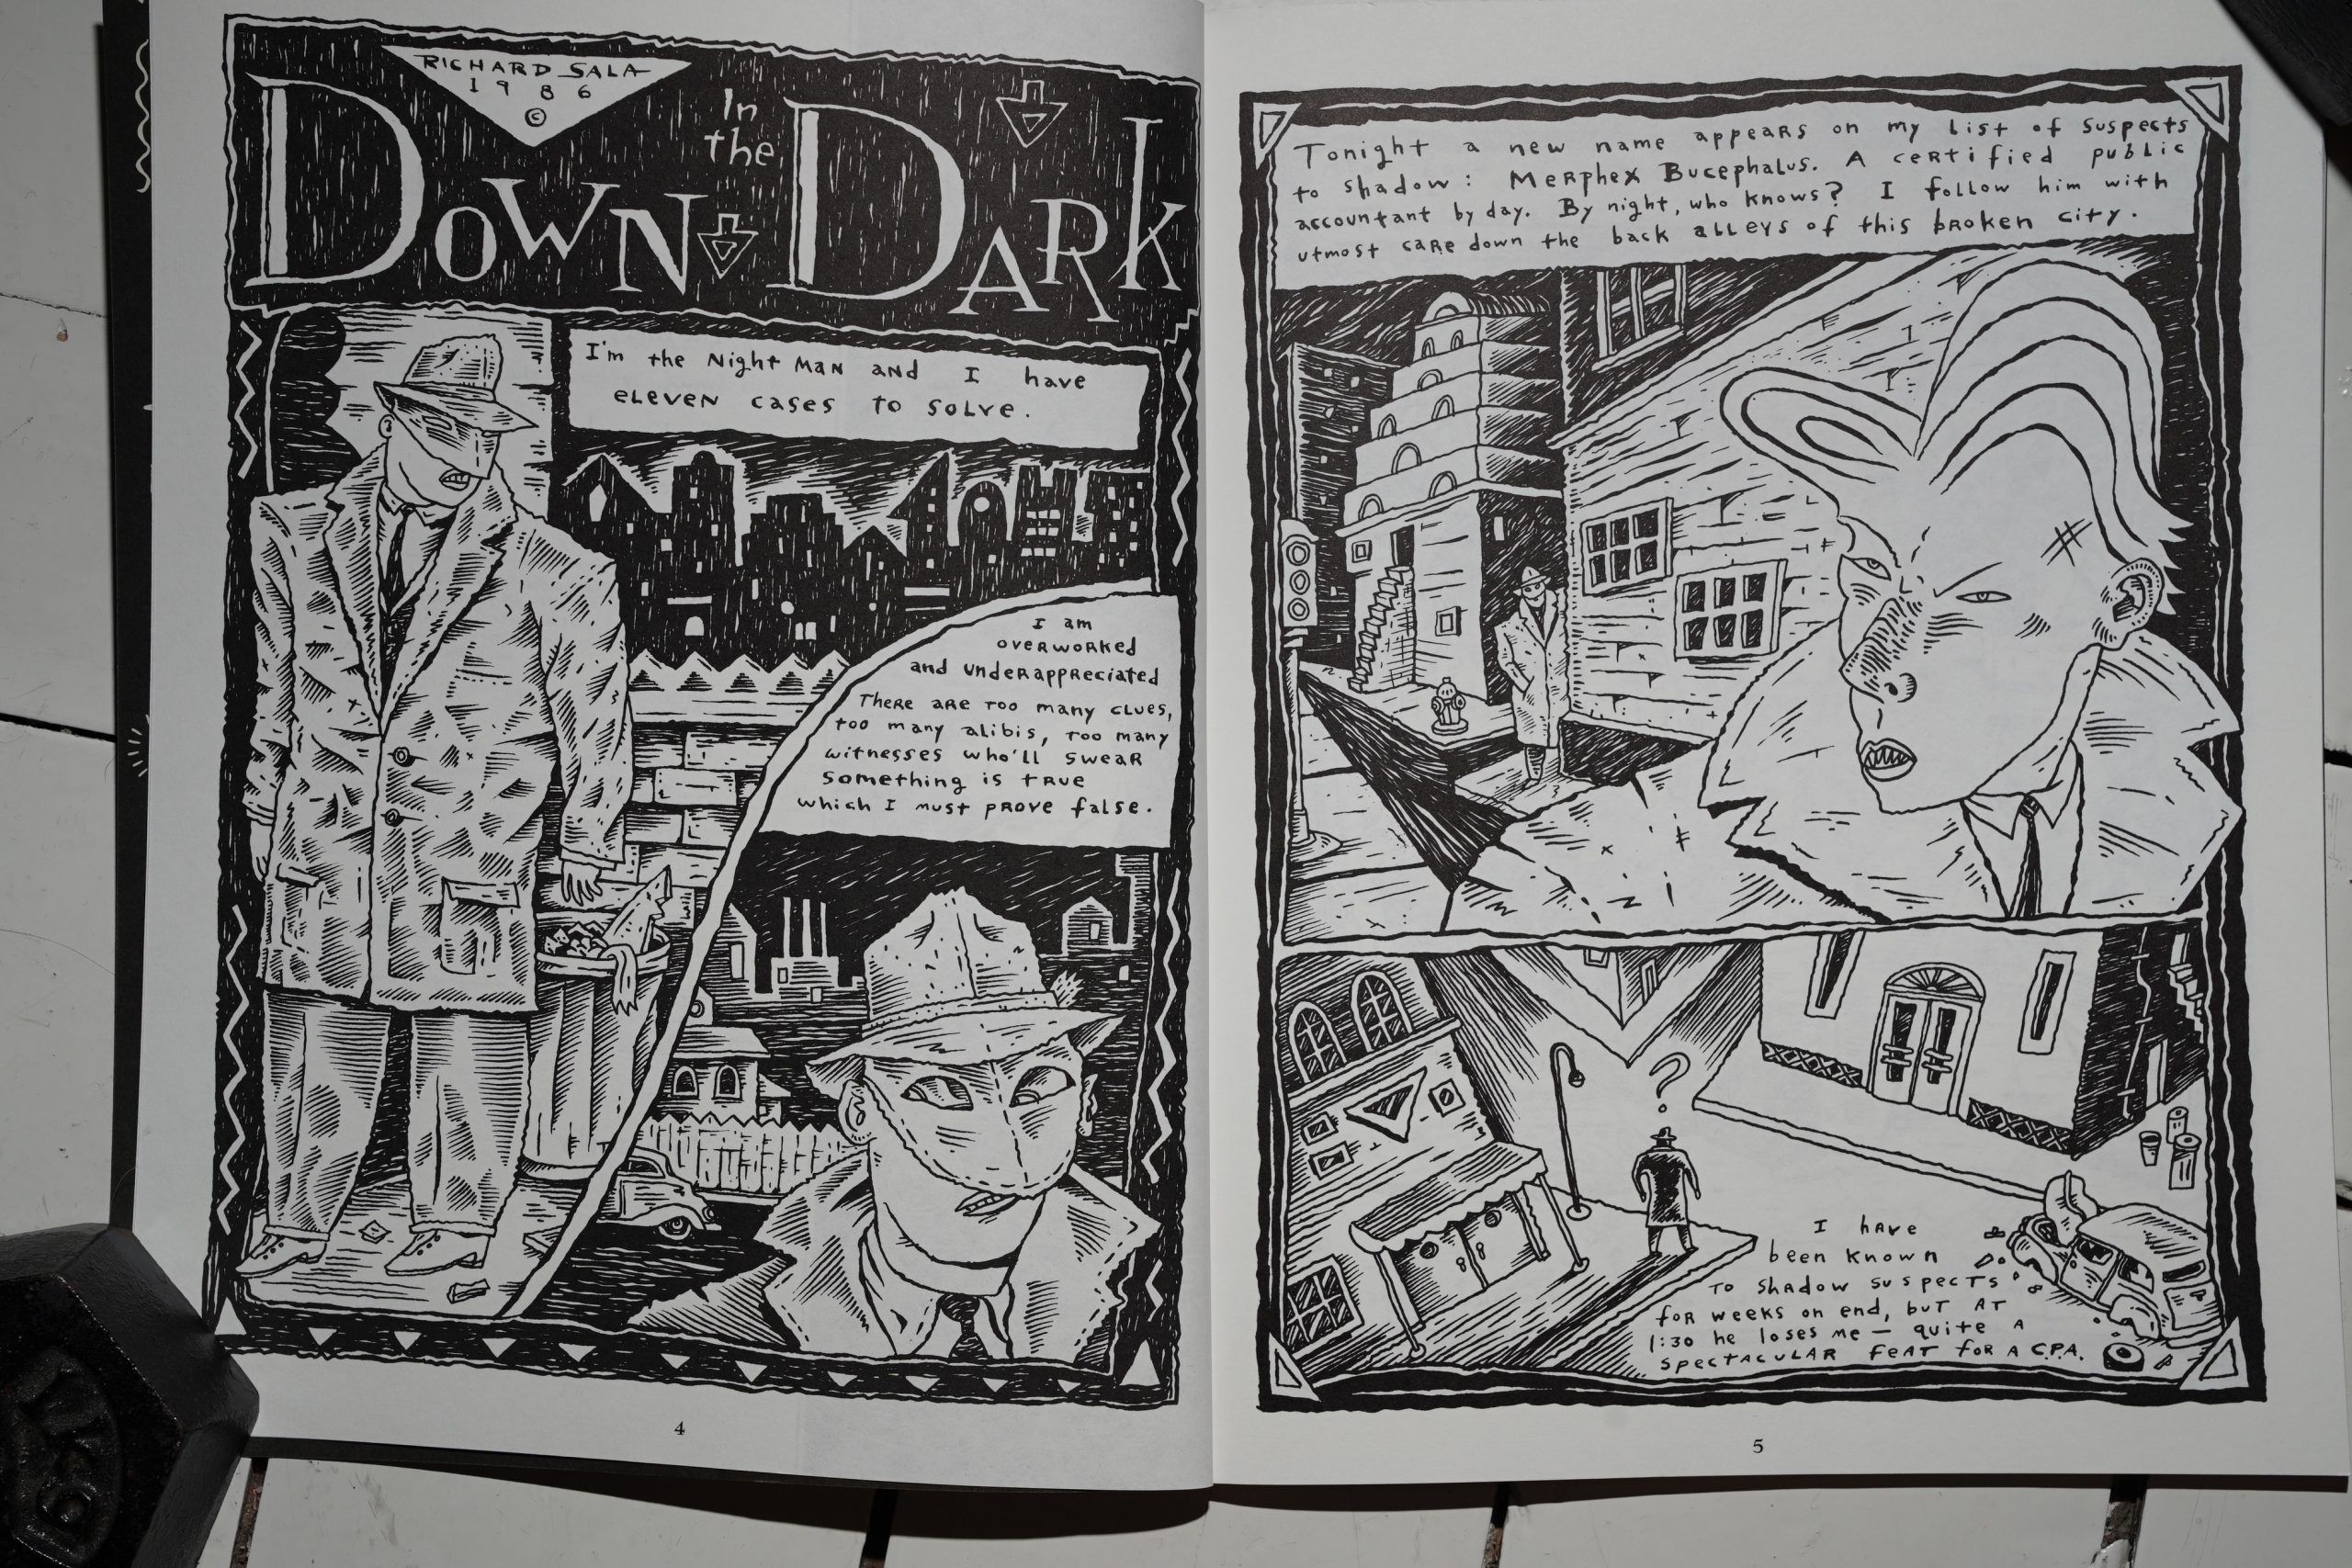 RICHARD SALA
1986
©
DOWN In the DARK
I'm the Night Man and I have
eleven cases to solve.
I am
overworked
and underappreciated
There are too many clues,
too many alibis, too many
witnesses who'll swear
something is true
which I must prove false.
4
Tonight a new name appears on my list of suspects
to shadow: Merphex Bucephalus. A certified public
accountant by day. By night, who knows? I follow him with
utmost care down the back alleys of this broken city.
?
I have
been known
to shadow suspects
for weeks on end, but at
1:30 he loses me — quite a
spectacular feat for a C.P.A.
5